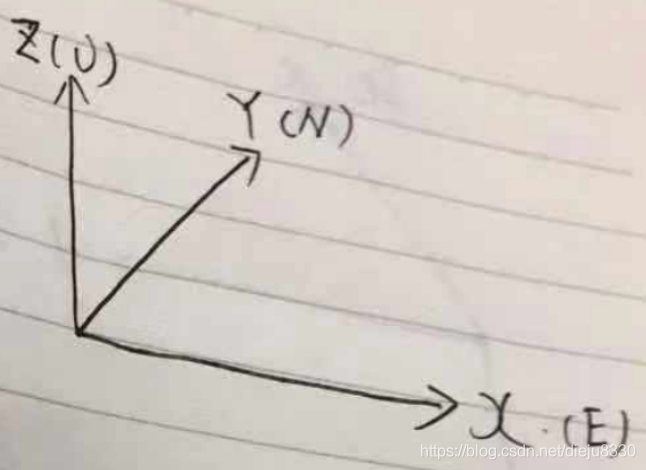 Z(U)
Y (N)
X (E)
https://blog.csdn.net/dieju8330